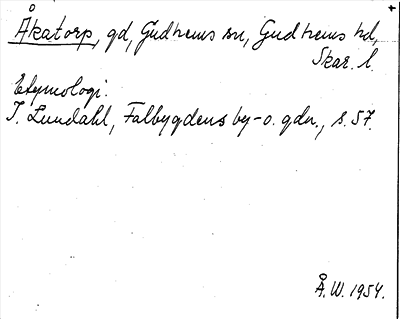 +
Åkatorp, gd, Gudhems sn, Gudhems hd,
Skar. l.
Etymologi.
I. Lundahl, Falbygdens by- o. gdn., s. 57.
Å. W. 1954.